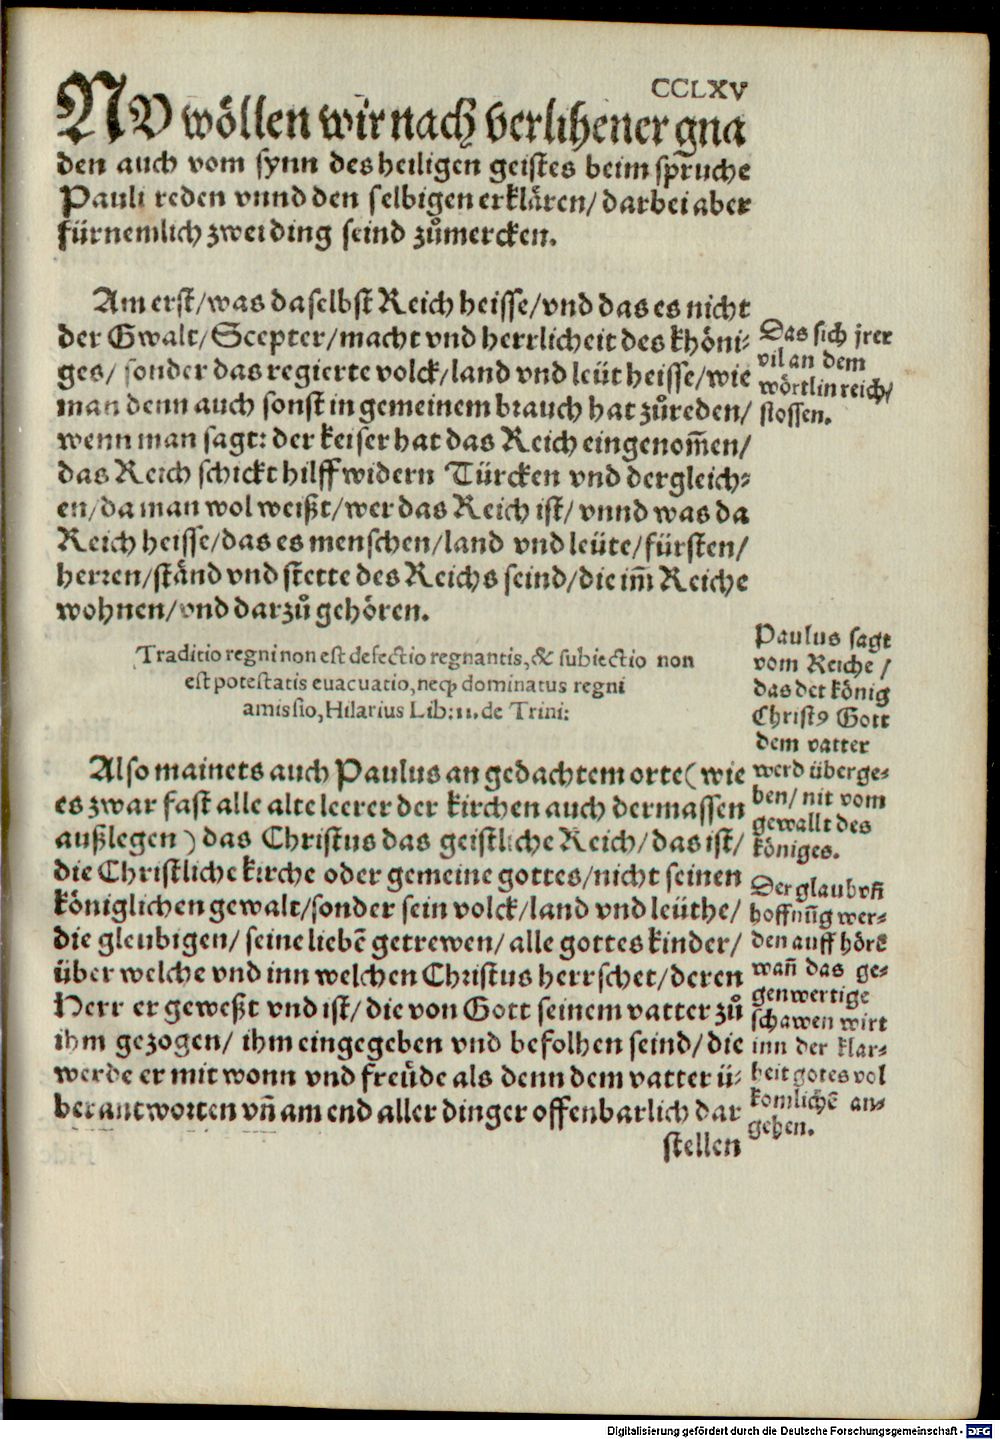 CCLXV
NV wöllen wir nach verlihener gna
den auch vom synn des heiligen geistes beim spruche
Pauli reden vnnd den selbigen erklären/ darbei aber
fürnemlich zwei ding seind zůmercken.
Am erst/was daselbst Reich heisse/vnd das es nicht
der Gwalt/Scepter/macht vnd herrlicheit des khöni-
ges/ sonder das regierte volck/land vnd leüt heisse/wie
man denn auch sonst in gemeinem brauch hat zůreden/
wenn man sagt: der keiser hat das Reich eingenom̃en/
das Reich schickt hilff widern Türcken vnd dergleich-
en/da man wol weißt/wer das Reich ist/ vnnd was da
Reich heisse/das es menschen/land vnd leüte/fürsten/
herren/ständ vnd stette des Reichs seind/die im̃ Reiche
wohnen/vnd darzů gehören.
Das sich jrer
vil an dem
wörtlin reich/
stossen.
Traditio regni non est defectio regnantis,& subiectio non
est potestatis euacuatio,neq; dominatus regni
amissio,Hilarius Lib:11.de Trini:
Also mainets auch Paulus an gedachtem orte(wie
es zwar fast alle alte leerer der kirchen auch dermassen
außlegen) das Christus das geistliche Reich/das ist/
die Christliche kirche oder gemeine gottes/nicht seinen
königlichen gewalt/sonder sein volck/land vnd leüthe/
die gleubigen/ seine liebẽ getrewen/ alle gottes kinder/
über welche vnd inn welchen Christus herrschet/deren
Herr er geweßt vnd ist/die von Gott seinem vatter zů
ihm gezogen/ ihm eingegeben vnd befolhen seind/die
werde er mit wonn vnd freüde als denn dem vatter ü-
berantworten vñ am end aller dinger offenbarlich dar
stellen
Paulus sagt
vom Reiche /
das der könig
Christ9 Gott
dem vatter
werd überge-
ben/ nit vom
gewallt des
königes.
Der glaub vñ
hoffnũg wer-
den auff hörẽ
wañ das ge-
genwertige
schawen wirt
inn der klar-
heit gotes vol
komlichẽ an-
gehen.
Digitalisierung gefördert durch die Deutsche Forschungsgemeinschaft - DFG